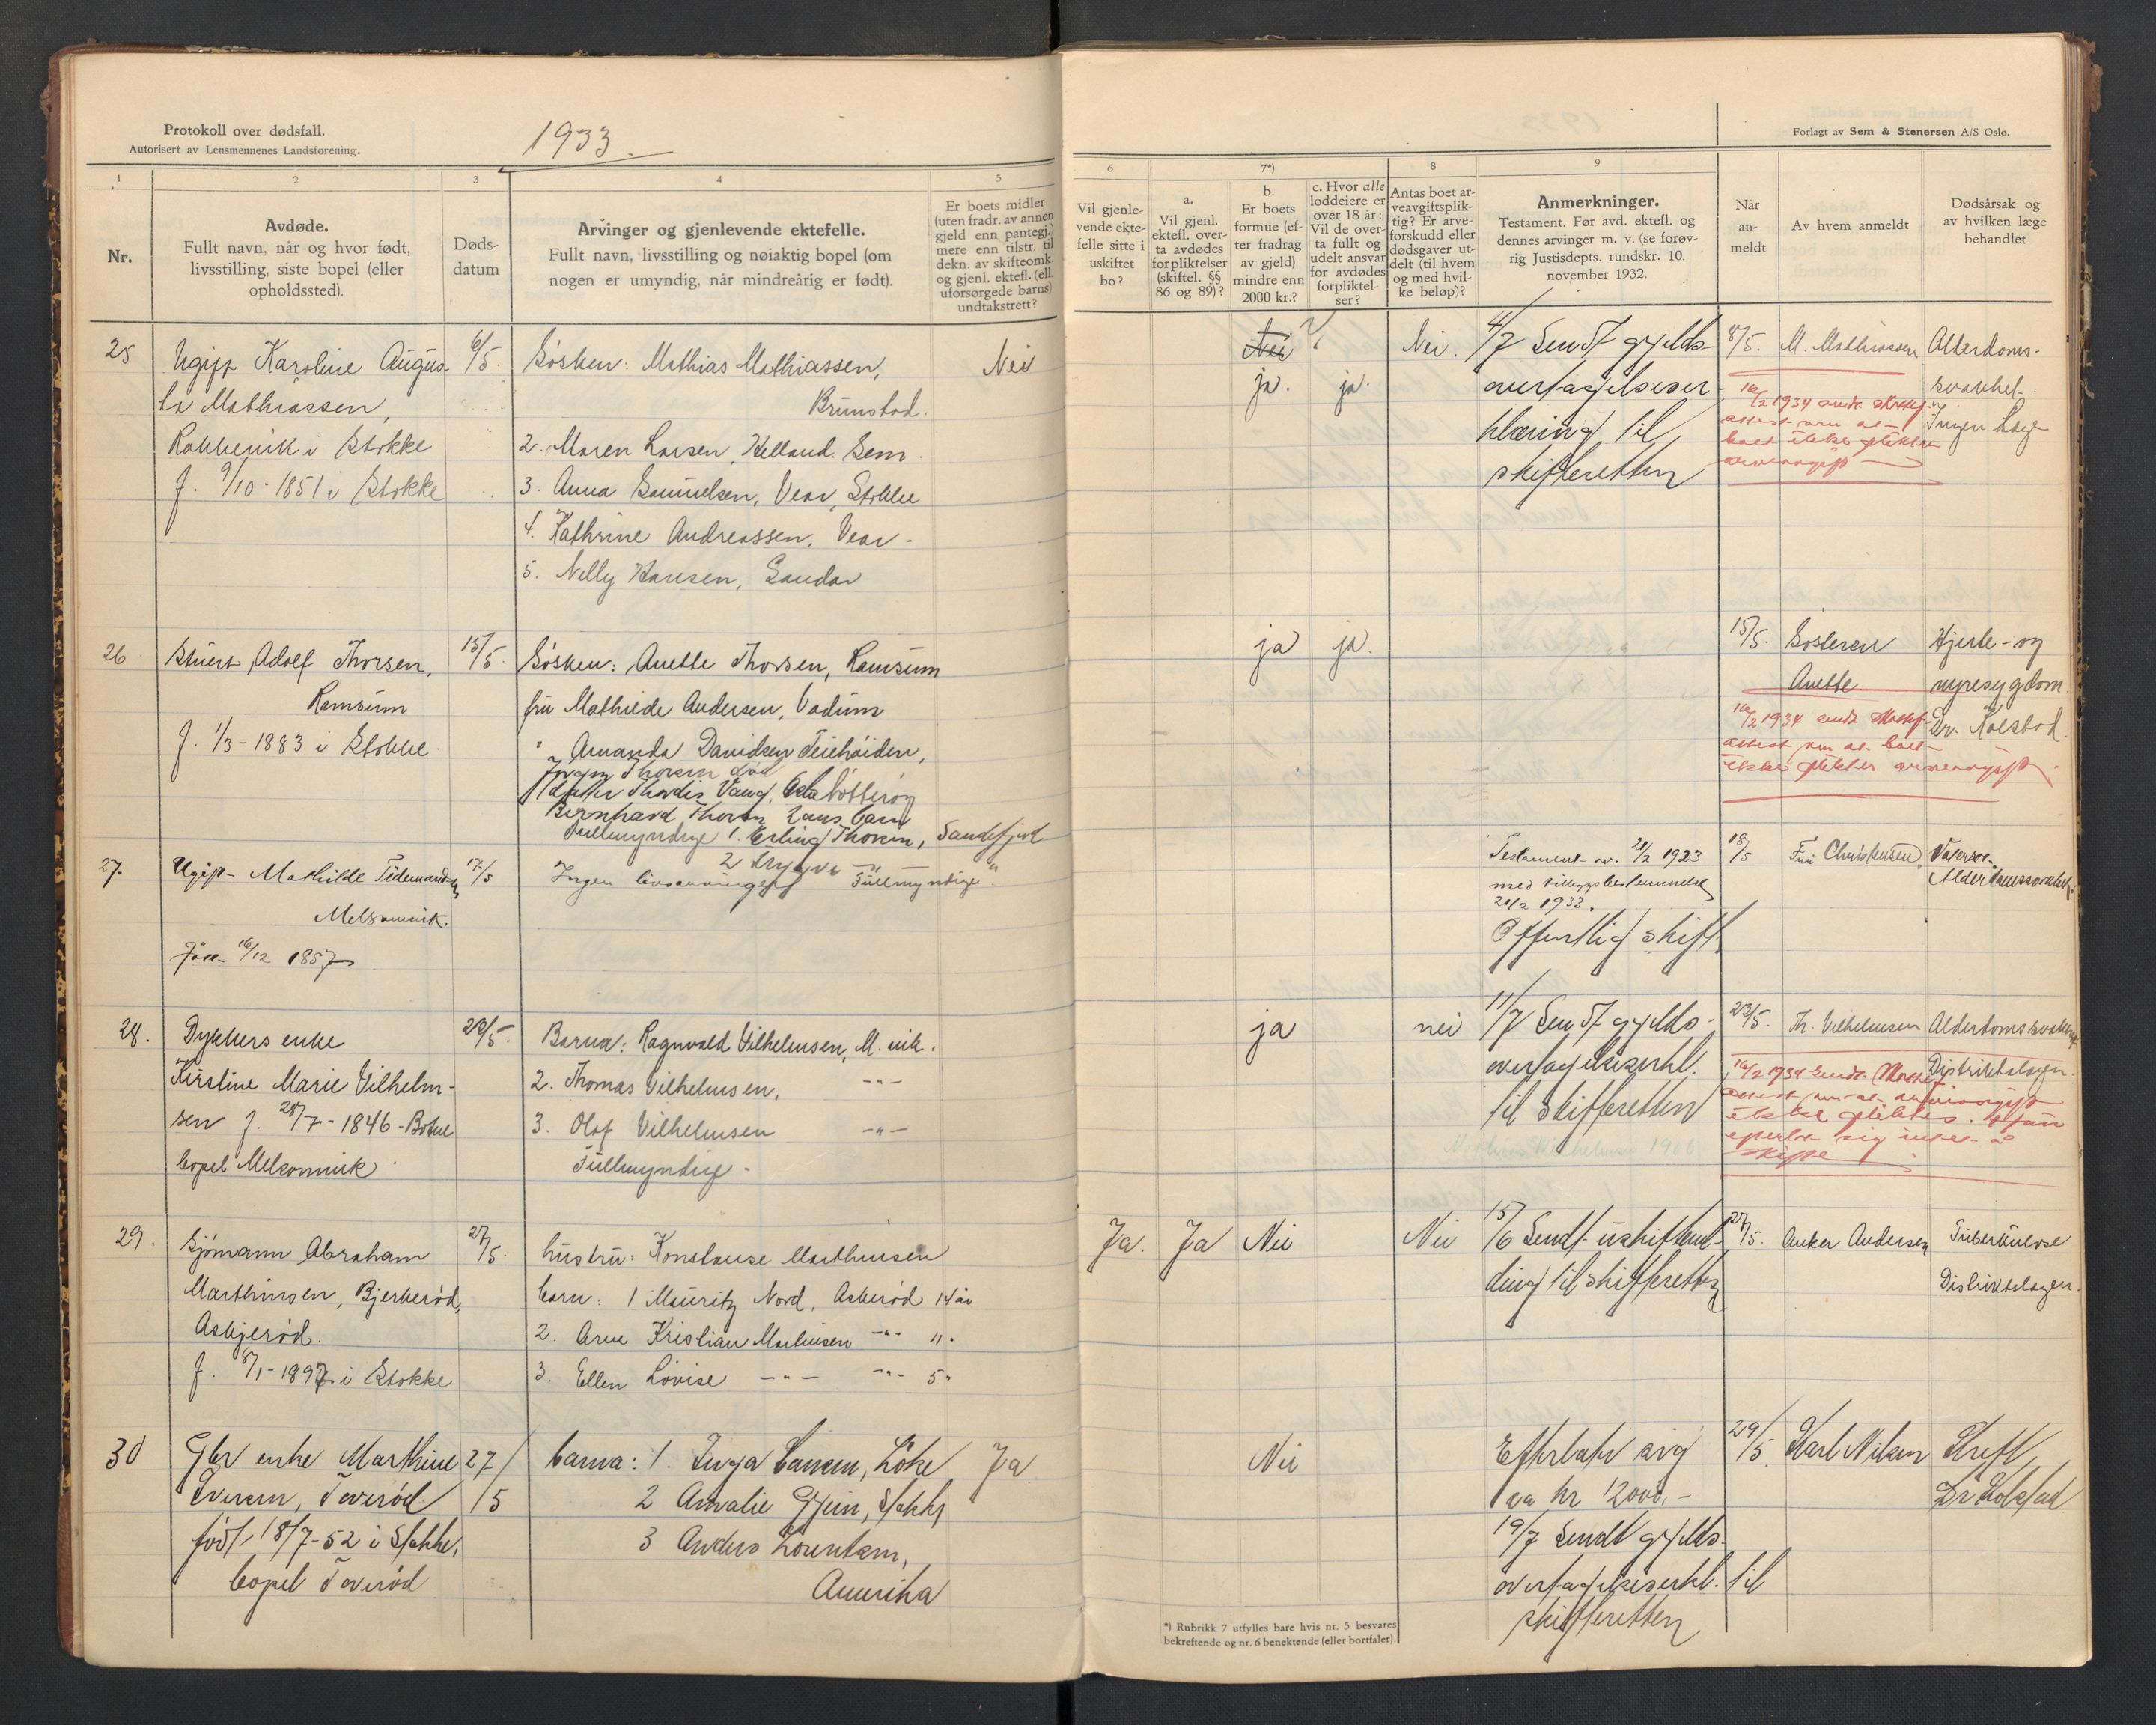 Protokoll over dødsfall.
Autorisert av Lensmennenes Landsforening.
1933.
1
2
3
4
5
Nr.
Avdøde.
Fullt navn, når og hvor født,
livsstilling, siste bopel (eller
opholdssted).
Døds-
datum
Arvinger og gjenlevende ektefelle.
Fullt navn, livsstilling og nøiaktig bopel (om
nogen er umyndig, når mindreårig er født).
Er boets midler
(uten fradr. av annen
gjeld enn pantegj.)
mere enn tilstr. til
dekn. av skifteomk.
og gjenl. ektefl. (ell.
uforsørgede barns)
undtakstrett?
25
Ugift Karoline Augus-
ta Mathiassen,
i Stokke
f. 9/10-1851 i Stokke
6/5.
Søsken: Mathias Mathiassen,
Brunstad.
2. Maren Larsen, Helland. Sem.
3. Anna Samuelsen, Vear, Stokke
4. Kathrine Andreassen, Vear.
5. Nelly Hansen, Sandar
Nei
26
Stuert Adolf Thorsen,
Ramsum
f. 1/3-1883 i Stokke.
15/5.
Søsken: Anette Thorsen, Ramsum
fru Mathilde Andersen, Vadum
" Amanda Davidsen Teiehøiden,
Thorsen død
datter Thordis Vang,
Bernhard Thorsen hans barn
Fullmyndige 1. Erling Thorsen, Sandefjord
2 Trygve -"- "
27.
Ugift Mathilde Tidemandsen
Melsomvik.
født 16/12 1857
17/5
Ingen livsarvinger Fullmyndige
28.
Dykkers enke
Kirstine Marie Vilhelm-
sen f. 28/7-1846 - Botne
bopel Melsomvik.
23/5.
Barna: Ragnvald Vilhelmsen, M.vik.
2. Thomas Vilhelmsen, -"-
3. Olaf Vilhelmsen -"-
Fullmyndige.
29.
Sjømann Abraham
Marthinsen, Bjerkerød,
Askjerød.
f. 8/1-1897 i Stokke
27/5.
hustru: Konstanse Marthinsen
barn: 1 Mauritz Nord, Askerød 14 år
2. Arne Kristian Marthinsen -"- 11.
3. Ellen Lovise -"- -"- 5"
30
Gbr enke Marthine
Iversen, Taverød
født 18/7-52 i Stokke,
bopel Taverød
27/5
barna: 1. Inga Hansen, Løke
2 Amalie Gjein, Stokke
3 Anders Lorentsen,
Amerika
Ja
Forlagt av Sem & Stenersen A/S Oslo.
6
7*)
8
9
Vil gjenle-
vende ekte-
felle sitte i
uskiftet
bo?
a.
Vil gjenl.
ektefl. over-
ta avdødes
forpliktelser
(skiftel. §§
86 og 89)?
b.
Er boets
formue (ef-
ter fradrag
av gjeld)
mindre enn
2000 kr.?
c. Hvor alle
loddeiere er
over 18 år:
Vil de over-
ta fullt og
udelt ansvar
for avdødes
forpliktel-
ser?
Antas boet ar-
veavgiftsplik-
tig? Er arve-
forskudd eller
dødsgaver ut-
delt (til hvem
og med hvil-
ke beløp)?
Anmerkninger.
Testament. Før avd. ektefl. og
dennes arvinger m. v. (se forøv-
rig Justisdepts. rundskr. 10.
november 1932.
Når
an-
meldt
Av hvem anmeldt
Dødsårsak og
av hvilken læge
behandlet
Nei
ja. ja.
Nei.
4/7 Sendt gjelds-
overtagelseser-
klæring til
skifteretten
8/5. M. Mathiassen
Alderdoms-
svakhet.
Ingen læge
16/2 1934 sendt skattef.
attest om at
boet ikke plikter
arveavgift
ja ja.
15/5. Søsteren
Anette
Hjerte- og
nyresygdom
Dr. Kolstad.
16/2 1934 sendt skattef.
attest om at boet
ikke plikter arveavgift.
Testament av 21/2 1923
med tilleggsbestemmelse
21/2 1933.
Offentlig skifte
18/5 Fru Christensen
Alderdomssvakhet
ja nei
11/7 Sendt gjelds-
overtagelseserkl.
til skifteretten
23/5. Th. Vilhelmsen
Alderdomssvakhet
Distriktslægen.
16/2 1934 sendt skattef
attest om at arveavgift
ikke pliktes. Hun
efterlot sig intet å
skifte
Ja. Ja Nei Nei
15/6 Sendt uskiftemel-
ding til skifteretten
27/5. Anker Andersen
Tuberkulose
Distriktslægen.
Nei
Efterlater sig
ca kr 12000,-
19/7 Sendt gjelds-
overtagelseserkl. til
skifteretten
29/5 Karl Nilsen
Kreft,
Dr Kolstad
*) Rubrikk 7 utfylles bare hvis nr. 5 besvares
bekreftende og nr. 6 benektende (eller bortfaler).